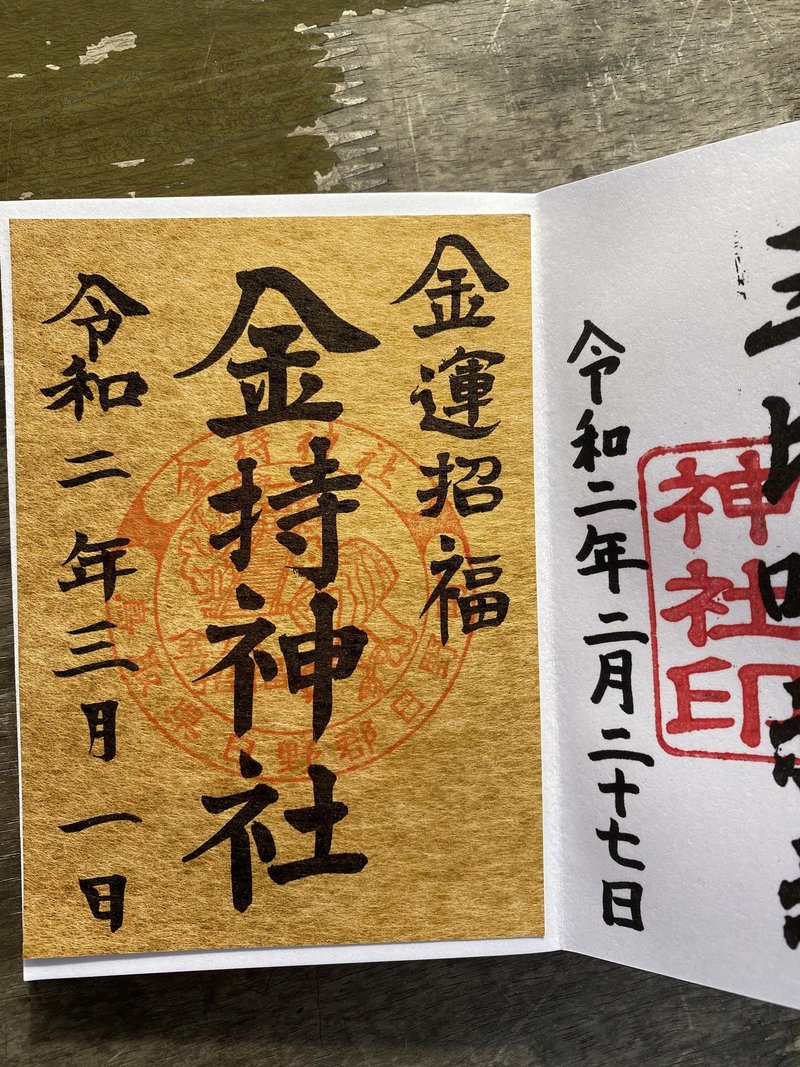 神社印
令和二年二月二十七日
金運招福
金持神社
金持神社
令和二年三月一日